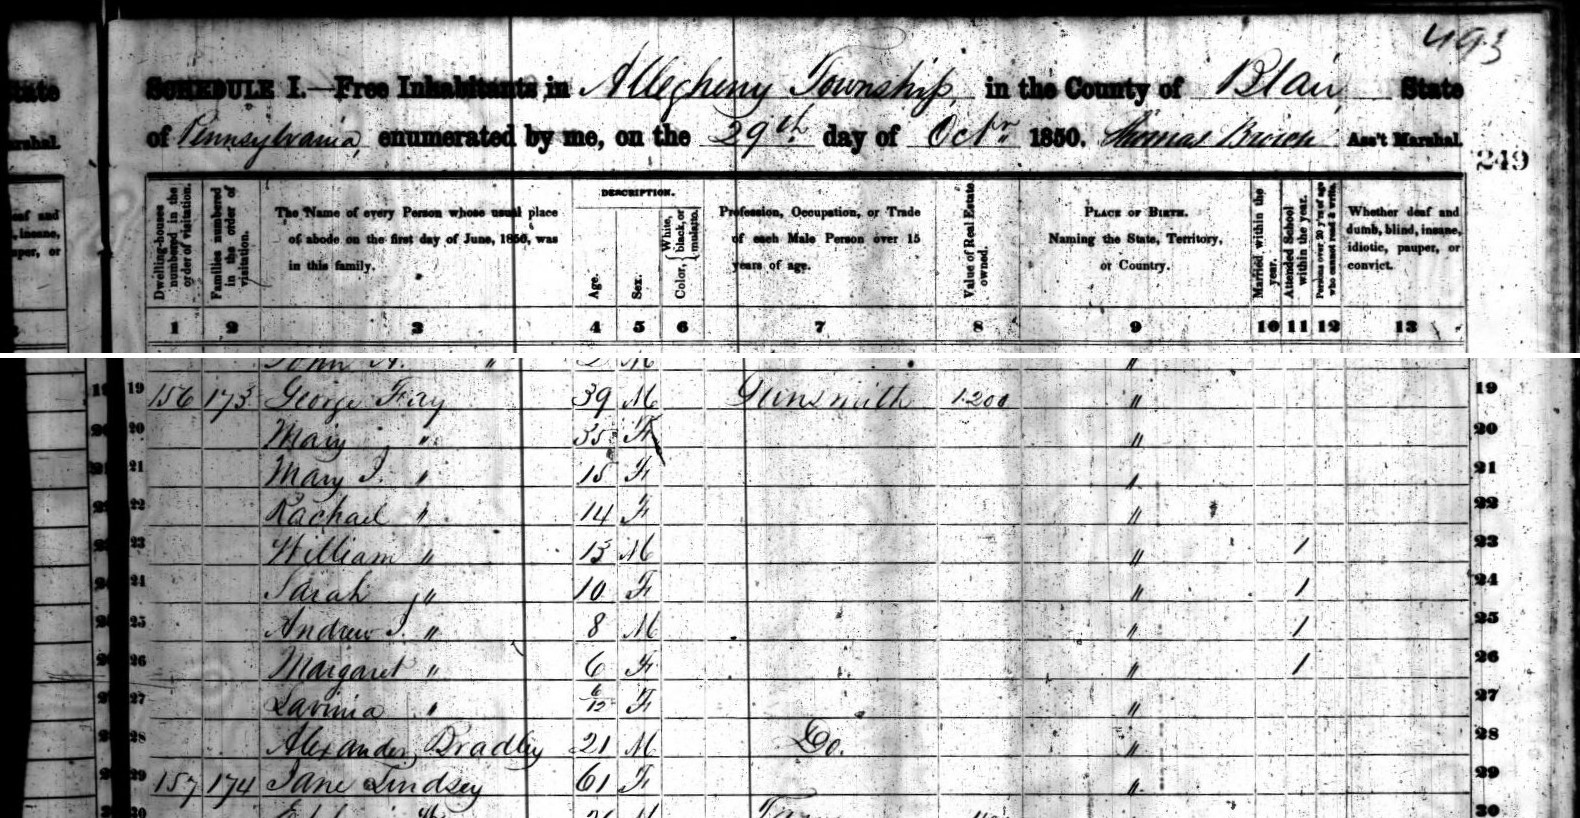 493
SCHEDULE I.—Free Inhabitants in Allegheny Township in the County of Blair State
of Pennsylvania enumerated by me, on the 29th day of Octr 1850. Thomas Brown Ass't Marshal.
249
DESCRIPTION.
Dwelling-houses numbered in the order of visitation.
Families numbered in the order of visitation.
The Name of every Person whose usual place of abode on the first day of June, 1850, was in this family.
Age.
Sex.
Color, White, black, or mulatto.
Profession, Occupation, or Trade of each Male Person over 15 years of age.
Value of Real Estate owned.
PLACE OF BIRTH. Naming the State, Territory, or Country.
Married within the year.
Attended School within the year.
Persons over 20 y'rs of age who cannot read & write.
Whether deaf and dumb, blind, insane, idiotic, pauper, or convict.
1 2 3 4 5 6 7 8 9 10 11 12 13
John A. " 2 M "
19 156 173 George Fay 39 M Gunsmith 1200 " 19
20 Mary " 35 F " 20
21 Mary J. " 15 F " 21
22 Rachael " 14 F " 22
23 William " 13 M " 1 23
24 Sarah " 10 F " 1 24
25 Andrew J. " 8 M " 1 25
26 Margaret " 6 F " 1 26
27 Lavinia " 6/12 F " 27
28 Alexander Bradley 21 M Do. " 28
29 157 174 Jane Lindsey 61 F " 29
30 30